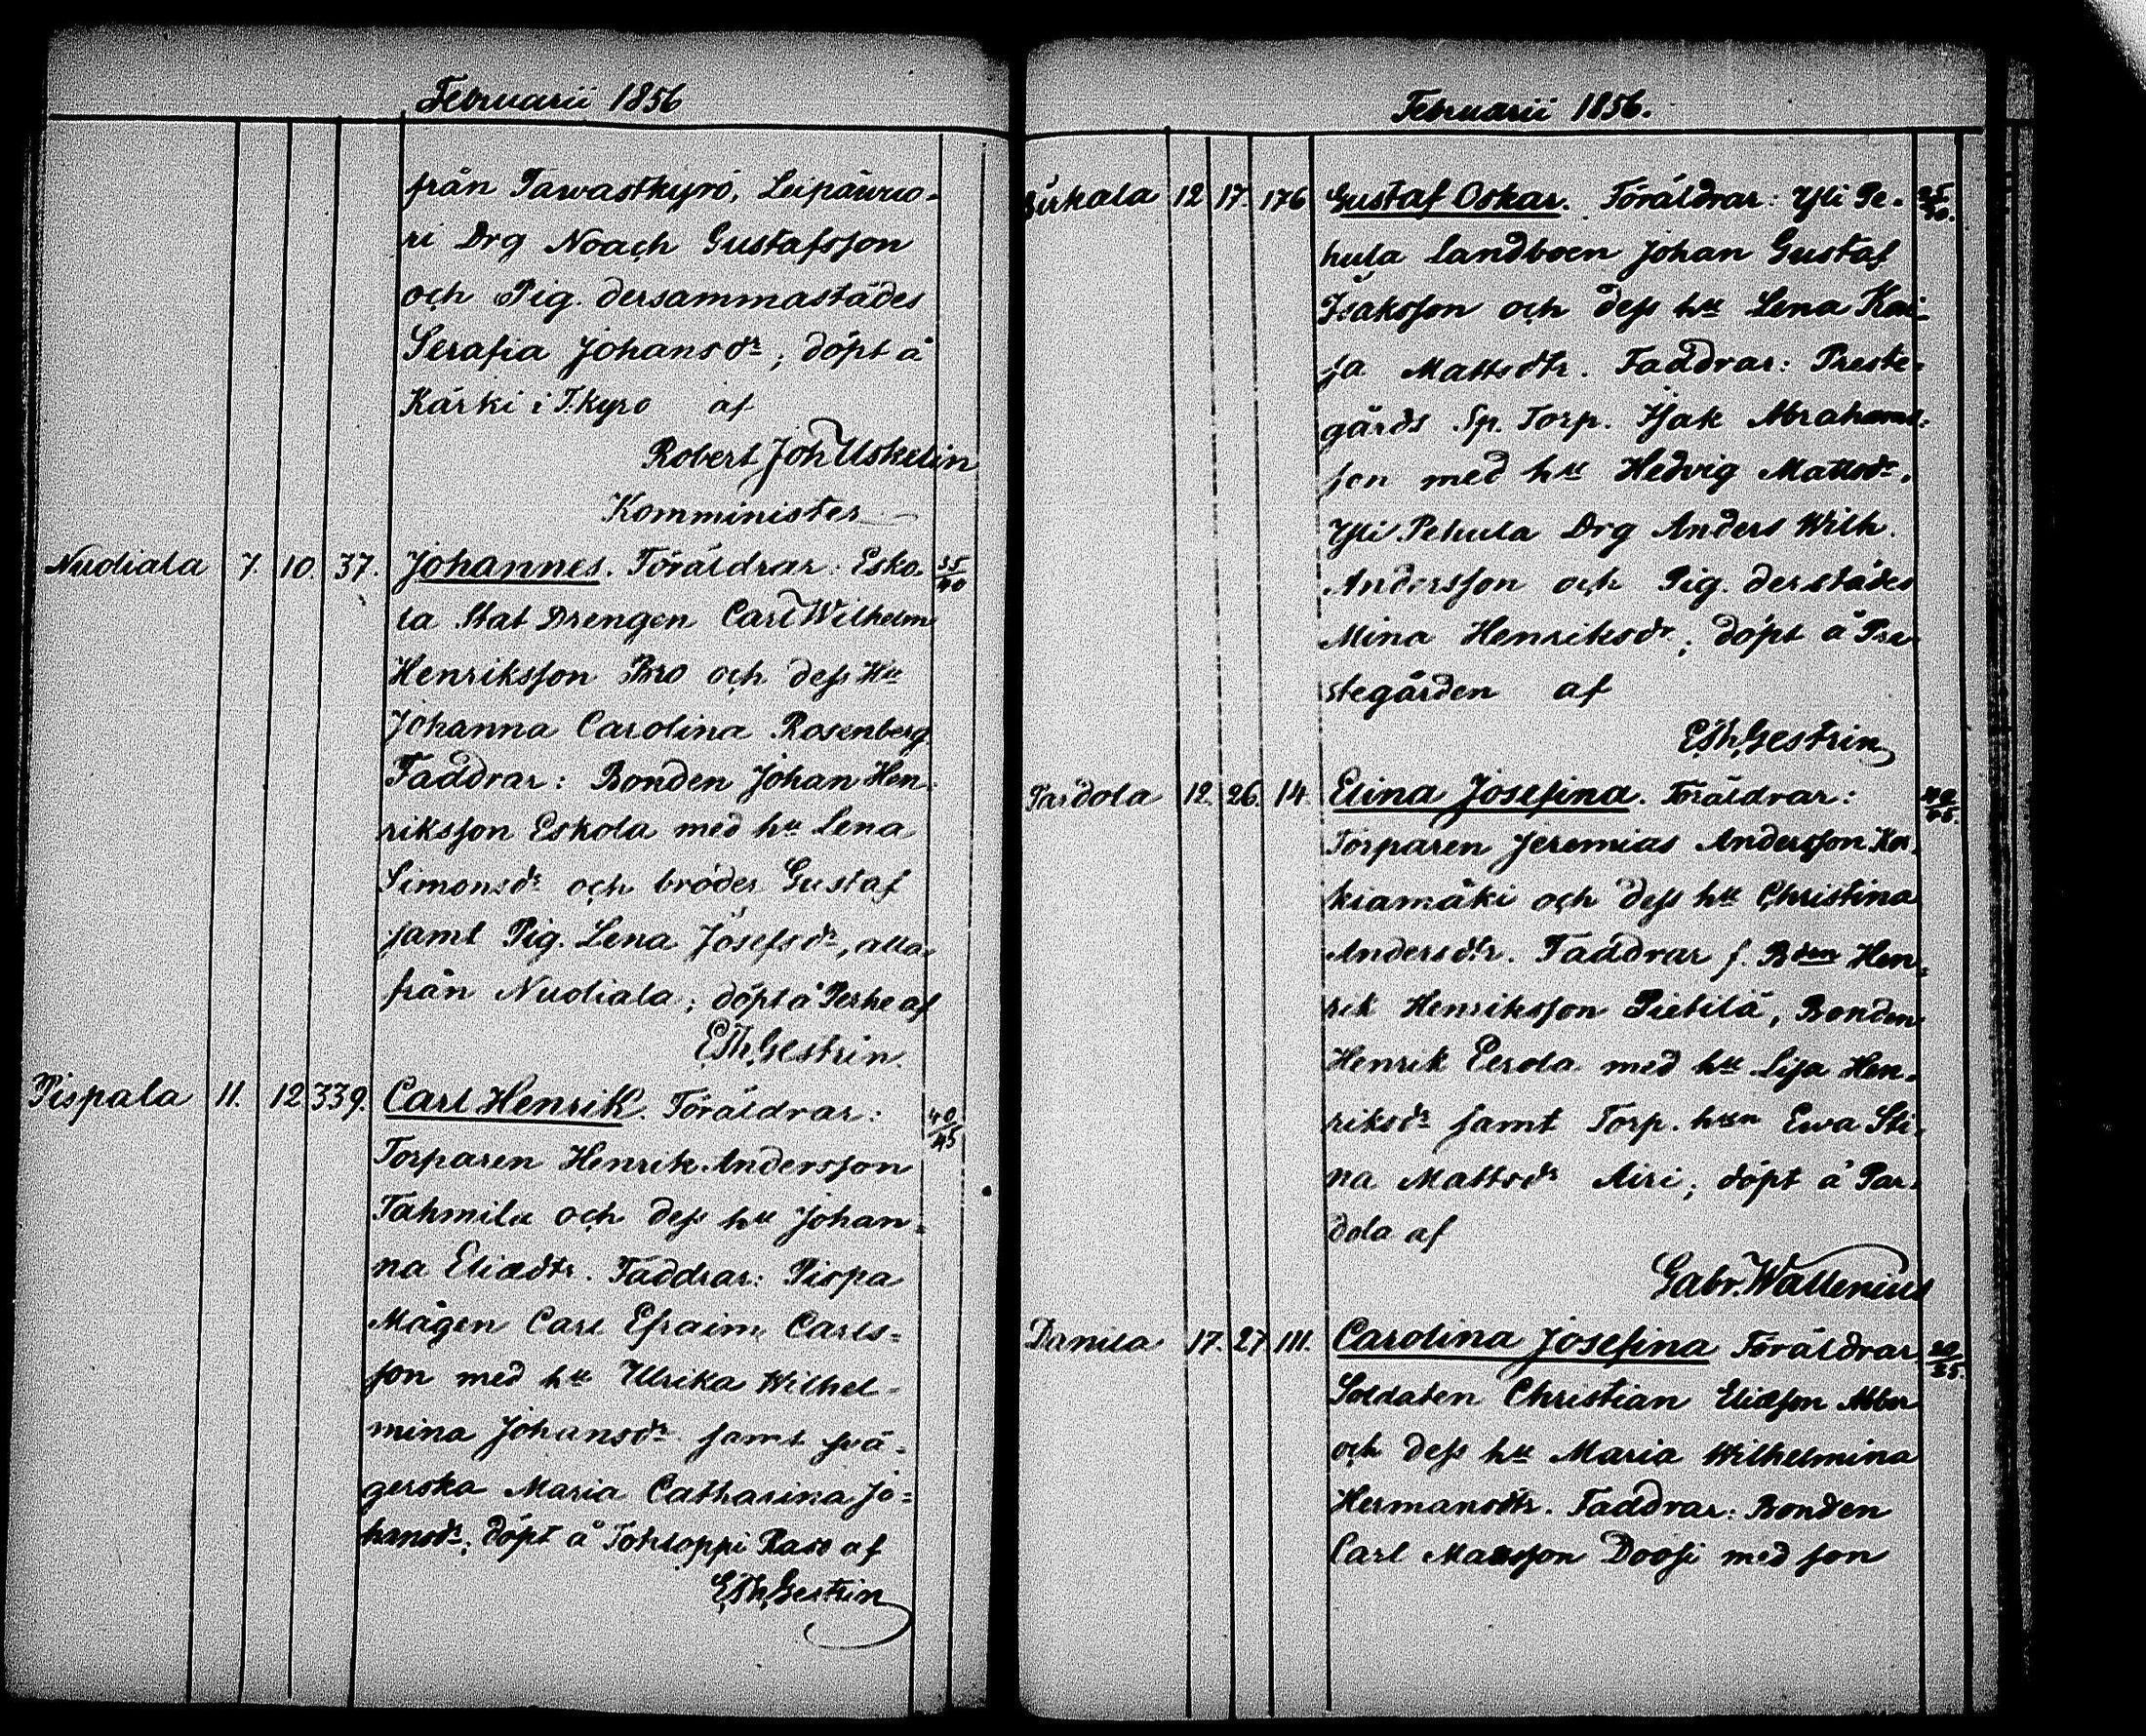 Februarii 1856
från Tawastkyrö, Leipäwuo-
ri Drg Noach Gustafsson
och Pig. dersammastädes
Serafia Johansdr; döpt å
Kärki i T.kyro af
Robert Joh Uskelin
Komminister
Nuoliala 7. 10. 37. Johannes. Föräldrar: Esko- 35/40
la Stat Drengen Carl Wilhelm
Henriksson Bro och dess Hu
Johanna Carolina Rosenberg.
Faddrar: Bonden Johan Hen-
riksson Eskola med hu Lena
Simonsdr och bröder Gustaf
samt Pig. Lena Josefsdr, alla
från Nuoliala; döpt å Perhe af
E Th Gestrin.
Pispala 11. 12 339. Carl Henrik. Föräldrar: 40/45
Torparen Henrik Andersson
Tahmila och dess hu Johan-
na Eliædtr. Faddrar: Pispa
Mågen Carl Efraim Carls=
son med hu Ulrika Wilhel-
mina Johansdr samt svä-
gerska Maria Catharina Jo=
hansdr; döpt å Tohloppi Raso af
E Th Gestrin
Februarii 1856.
Birkala 12 17. 176 Gustaf Oskar. Föräldrar: Yli Pe- 25/30.
hula Landboen Johan Gustaf
Isaksson och dess hu Lena Kai-
sa Mattsdtr. Faddrar: Preste-
gårds Sp. Torp. Isak Abrahams-
son med hu Hedvig Mattsdr,
Yli Pehula Drg Anders Wilh.
Andersson och Pig. derstädes
Mina Henriksdr; döpt å Pre
stegården af
E Th Gestrin
Pardola 12. 26. 14. Elina Josefina. Föräldrar: 40/45.
Torparen Jeremias Andersson Kor-
kiamäki och dess hu Christina
Andersdtr. Faddrar f. Bden Hen=
rik Henriksson Pietilä, Bonden
Henrik Eerola med hu Lisa Hen-
riksdr samt Torp. hun Ewa Sti-
na Mattsdr Airi; döpt å Par-
dola af
Gabr. Wallenius
Danila 17. 27 111. Carolina Josefina Föräldrar
Soldaten Christian Eliæson Abbor
och dess hu Maria Wilhelmina
Hermansdtr. Faddrar: Bonden
Carl Matsson Doosi med son